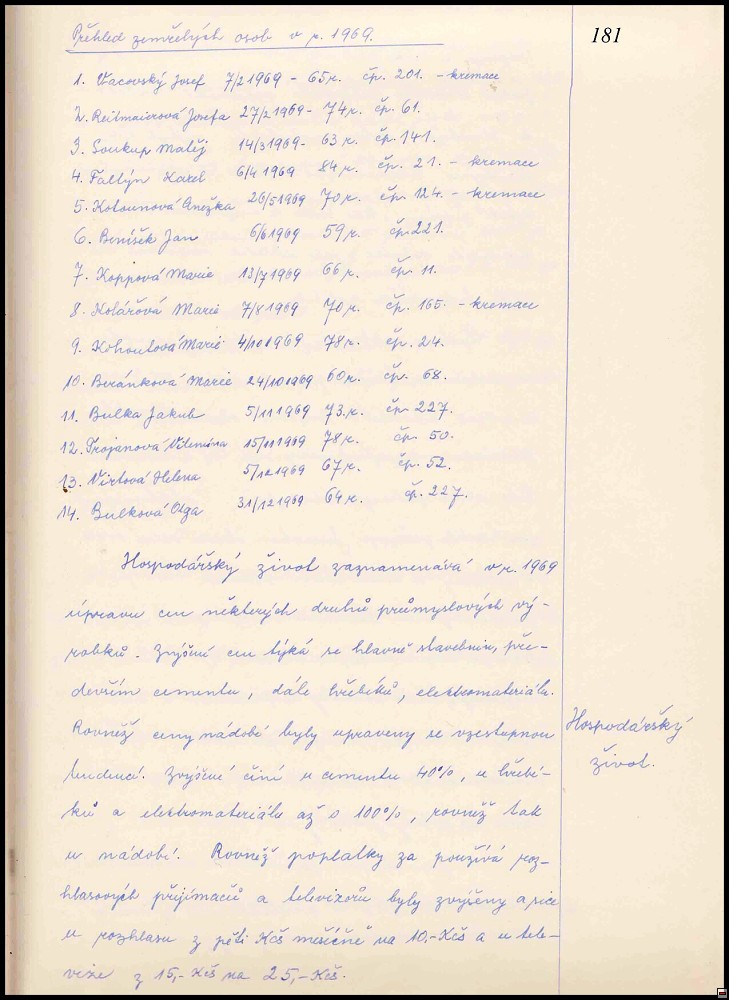 Přehled zemřelých osob v r. 1969.
181
1. Vacovský Josef 7/2 1969 - 65 r. čp. 201. - kremace
2. Reitmaierová Josefa 27/2 1969 - 74 r. čp. 61.
3. Soukup Matěj 14/3 1969 - 63 r. čp. 141.
4. Faltýn Karel 6/4 1969 84 r. čp. 21. - kremace
5. Kotounová Anežka 26/5 1969 70 r. čp. 124. - kremace
6. Beníšek Jan 6/6 1969 59 r. čp. 221.
7. Koppová Marie 13/7 1969 66 r. čp. 11.
8. Kolářová Marie 7/8 1969 70 r. čp. 165. - kremace
9. Kohoutová Marie 4/10 1969 78 r. čp. 24.
10. Beránková Marie 24/10 1969 60 r. čp. 68.
11. Bulka Jakub 5/11 1969 73 r. čp. 227.
12. Trojanová Vilemína 15/11 1969 78 r. čp. 50.
13. Virtová Helena 5/12 1969 67 r. čp. 52.
14. Bulková Olga 31/12 1969 64 r. čp. 227.
Hospodářský život zaznamenává v r. 1969
úpravu cen některých druhů průmyslových vý-
robků. Zvýšení cen týká se hlavně stavebnin, pře-
devším cementu, dále hřebíků, elektromateriálu.
Rovněž ceny nádobí byly upraveny se vzestupnou
tendencí. Zvýšení činí u cementu 40%, u hřebí-
ků a elektromateriálu až o 100%, rovněž tak
u nádobí. Rovněž poplatky za používá roz-
hlasových přijímačů a televizorů byly zvýšeny a sice
u rozhlasu z pěti Kčs měsíčně na 10,- Kčs a u tele-
vize z 15,- Kčs na 25,- Kčs.
Hospodářský
život.